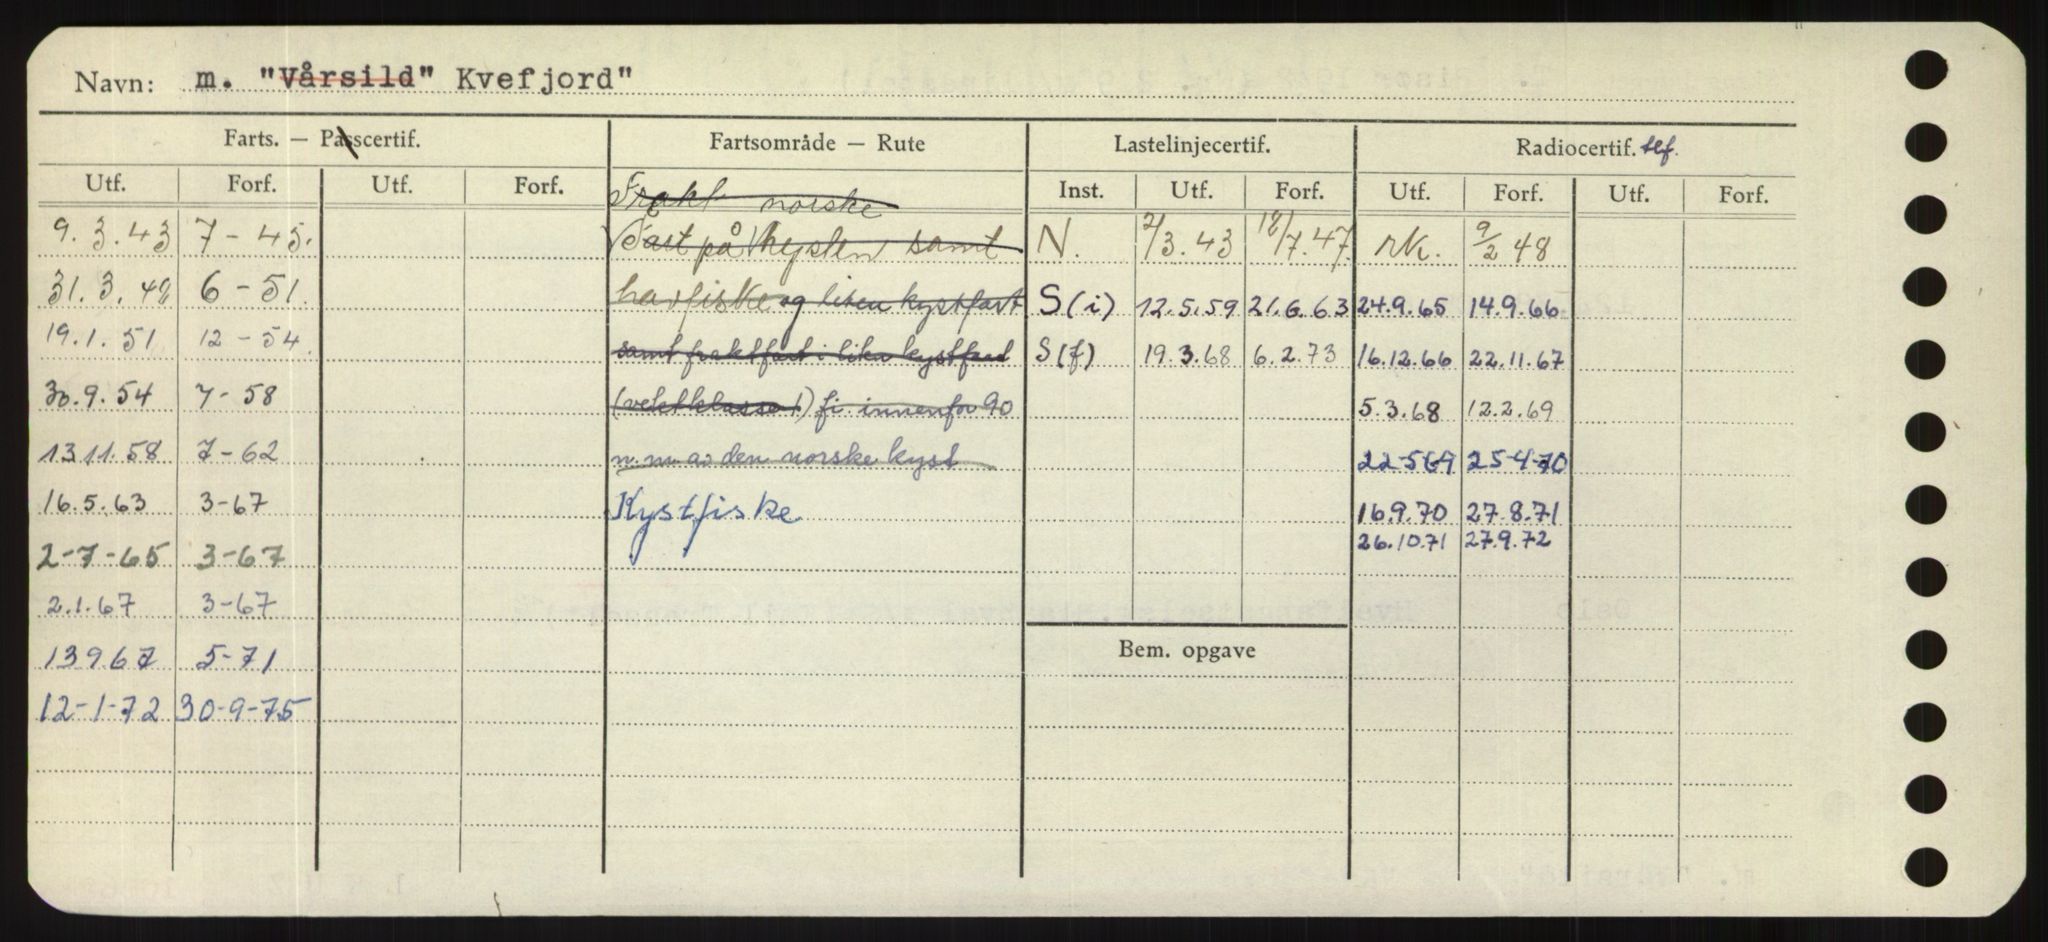 Navn: m. "Vårsild" Kvefjord"
Farts. — Passcertif. Fartsområde — Rute Lastelinjecertif. Radiocertif. tlf.
Utf. Forf. Utf. Forf. Inst. Utf. Forf. Utf. Forf. Utf. Forf.
Frakt norske
9.3.43 7-45. Fart på kysten samt N. 2/3.43 12/7.47 rk. 9/2 48
31.3.49 6-51 havfiske og liten kystfart S(i) 12.5.59 21.6.63 24.9.65 14.9.66
19.1.51 12-54. samt fraktfart i liten kystfart S(f) 19.3.68 6.2.73 16.12.66 22.11.67
30.9.54 7-58 (vektklasse 1) fi. innenfor 90 5.3.68 12.2.69
13.11.58 7-62 n.m. av den norske kyst 22-5-69 25-4-70
16.5.63 3-67 Kystfiske 16.9.70 27.8.71
2-7-65 3-67 26.10.71 27.9.72
2.1.67 3-67
13967 5-71 Bem. opgave
12-1-72 30-9-75